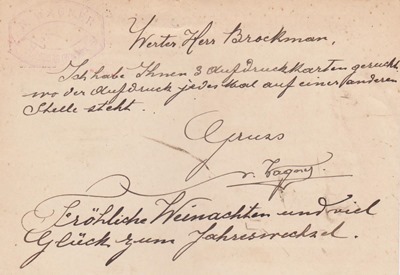 Werter Herr Brockman,
Ich habe Ihnen 3 Aufdruckkarten gesucht
wo der Aufdruck jedes Mal auf einer anderen
Stelle steht.
Gruss
v.
Fröhliche Weinachten und viel
Glück zum Jahreswechsel.